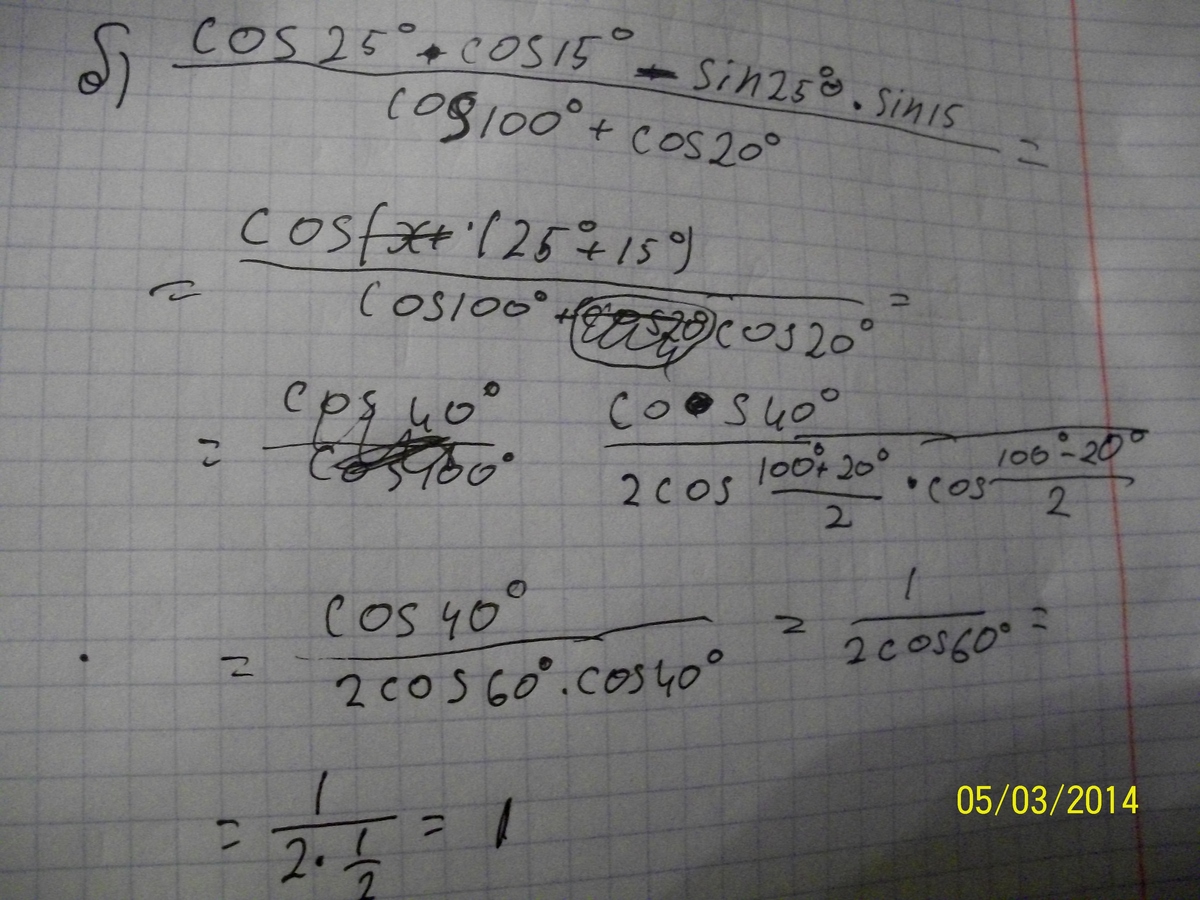 б) cos25° · cos15° - sin25° · sin15
cos100° + cos20° =
cos (25° + 15°)
= cos100° + cos20° =
= cos40° cos40°
cos100° 2cos 100° + 20° / 2 · cos 100° - 20° / 2
= cos40° / 2cos60° · cos40° = 1 / 2cos60° =
= 1 / 2 · 1/2 = 1
05/03/2014